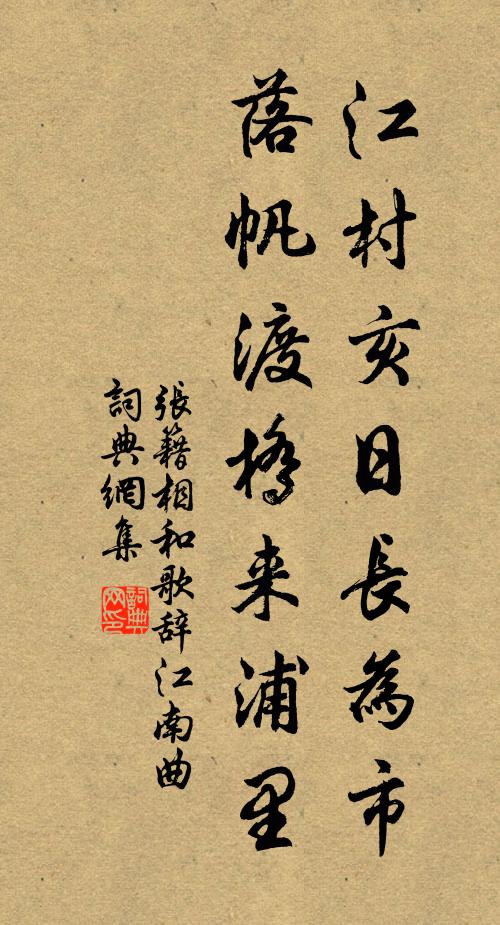 江村亥日長為市
落帆渡橋来浦里
張籍相和歌辞江南曲
詞典網集
詞典网印